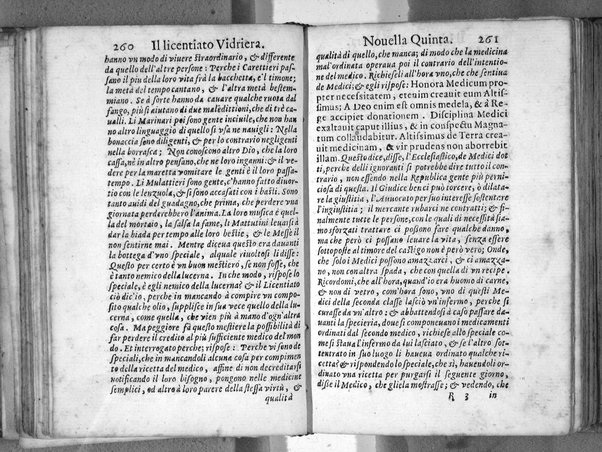 260 Il licentiato Vidriera.
hanno vn modo di viuere straordinario, & differente
da quello dell'altre persone: Perche i Carettieri pas-
sano il piu della loro vita frà la bacchetta, e'l timone;
la metà del tempo cantano, & l'altra metà bestem-
miano. Se à forte hanno da cauare qualche ruota dal
fango, più si aiutano di due maleditioni, che di trè ca-
ualli. Li Marinari poi sono gente inciuile, che non han
no altro linguaggio di quello s'vsa ne nauigli: Nella
bonaccia sono diligenti, & per lo contrario negligenti
nella borrasca; Non conoscono altro Dio, che la loro
cassa, nè in altro pensano, che ne loro inganni: & il ve-
dere per la maretta vomitare le genti è il loro passa-
tempo. Li Mulattieri sono gente, c'hanno fatto diuor-
tio con le lenzuola, & si sono accasati con i basti. Sono
tanto auidi del guadagno, che prima, che perdere vna
giornata perderebbero l'anima. La loro musica è quel-
la del mortaio, la salsa la fame, li Mattutini leuarsi à
dar la biada per tempo alle loro bestie, & le Messe il
non sentirne mai. Mentre diceua questo era dauanti
la bottega d'vno speciale, al quale riuoltosi li disse:
Questo per certo è vn buon mestiero, se non fosse, che
è tanto nemico della lucerna. In che modo, rispose lo
speciale, è egli nemico della lucerna? & il Licentiato
ciò dic'io, perche in mancando à compire vn compo-
sito qualche olio, supplisce in sua vece quello della lu-
cerna, come quello, che vien più à mano d'ogn'altra
cosa. Ma peggiore fà questo mestiere la possibilità di
far perdere il credito al più sufficiente medico del mon
do. Et interrogato perche; rispose: Perche vi sono de
speciali, che in mancandoli alcuna cosa per compimen
to della ricetta del medico, affine di non decreditarsi
notificando il loro bisogno, pongono nelle medicine
semplici, ed altro à loro parere della stessa virtù, &
qualità
Nouella Quinta. 261
qualità di quello, che manca; di modo che la medicina
mal'ordinata operaua poi il contrario dell'intentio-
ne del medico. Richieseli all'hora vno, che che sentiua
de Medici; & egli rispose: Honora Medicum prop-
ter necessitatem, etenim creauit eum Altis-
simus; A Deo enim est omnis medela, & à Re-
ge accipiet donationem. Disciplina Medici
exaltauit caput illius, & in conspectu Magna-
tum collaudabitur. Altissimus de Terra crea-
uit medicinam, & vir prudens non aborrebit
illam. Questo dice, disse, l'Ecclesiastico, de Medici dot
ti, perche delli ignoranti si potrebbe dire tutto il con-
trario, non essendo nella Republica gente più perni-
ciosa di questa. Il Giudice benci può torcere, ò dilata-
re la giustitia, l'Auuocato per suo interesse sostentare
l'ingiustitia; il mercante rubarci ne contratti; & fi-
nalmente tutte le persone, con le quali di necessità sia-
mo sforzati trattare ci possono fare qualche danno,
ma che però ci possano leuare la vita, senza essere
sottoposte al timore del castigo non è però vero; Onde,
che solo i Medici possono amazzarci, & ci amazza-
no, non con altra spada, che con quella d'vn recipe.
Ricordomi, che all'hora, quando'io era huomo di carne,
& non di vetro, com'hora sono, vno di questi Me-
dici della seconda classe lasciò vn'infermo, perche si
curasse da vn'altro: & abbattendosi à caso passare da-
uanti la specieria, doue si componeuano i medicamenti
ordinati dal secondo medico, richiese allo speciale co-
me si staua l'infermo da lui lasciato, & se l'altro sot-
tentrato in suo luogo li haueua ordinato qualche ri-
cetta? & rispondendo lo speciale, che sì, hauendoli or-
dinato vna ricetta per purgarsi il seguente giorno,
disse il Medico, che gliela mostrasse; & vedendo, che
R 3 in